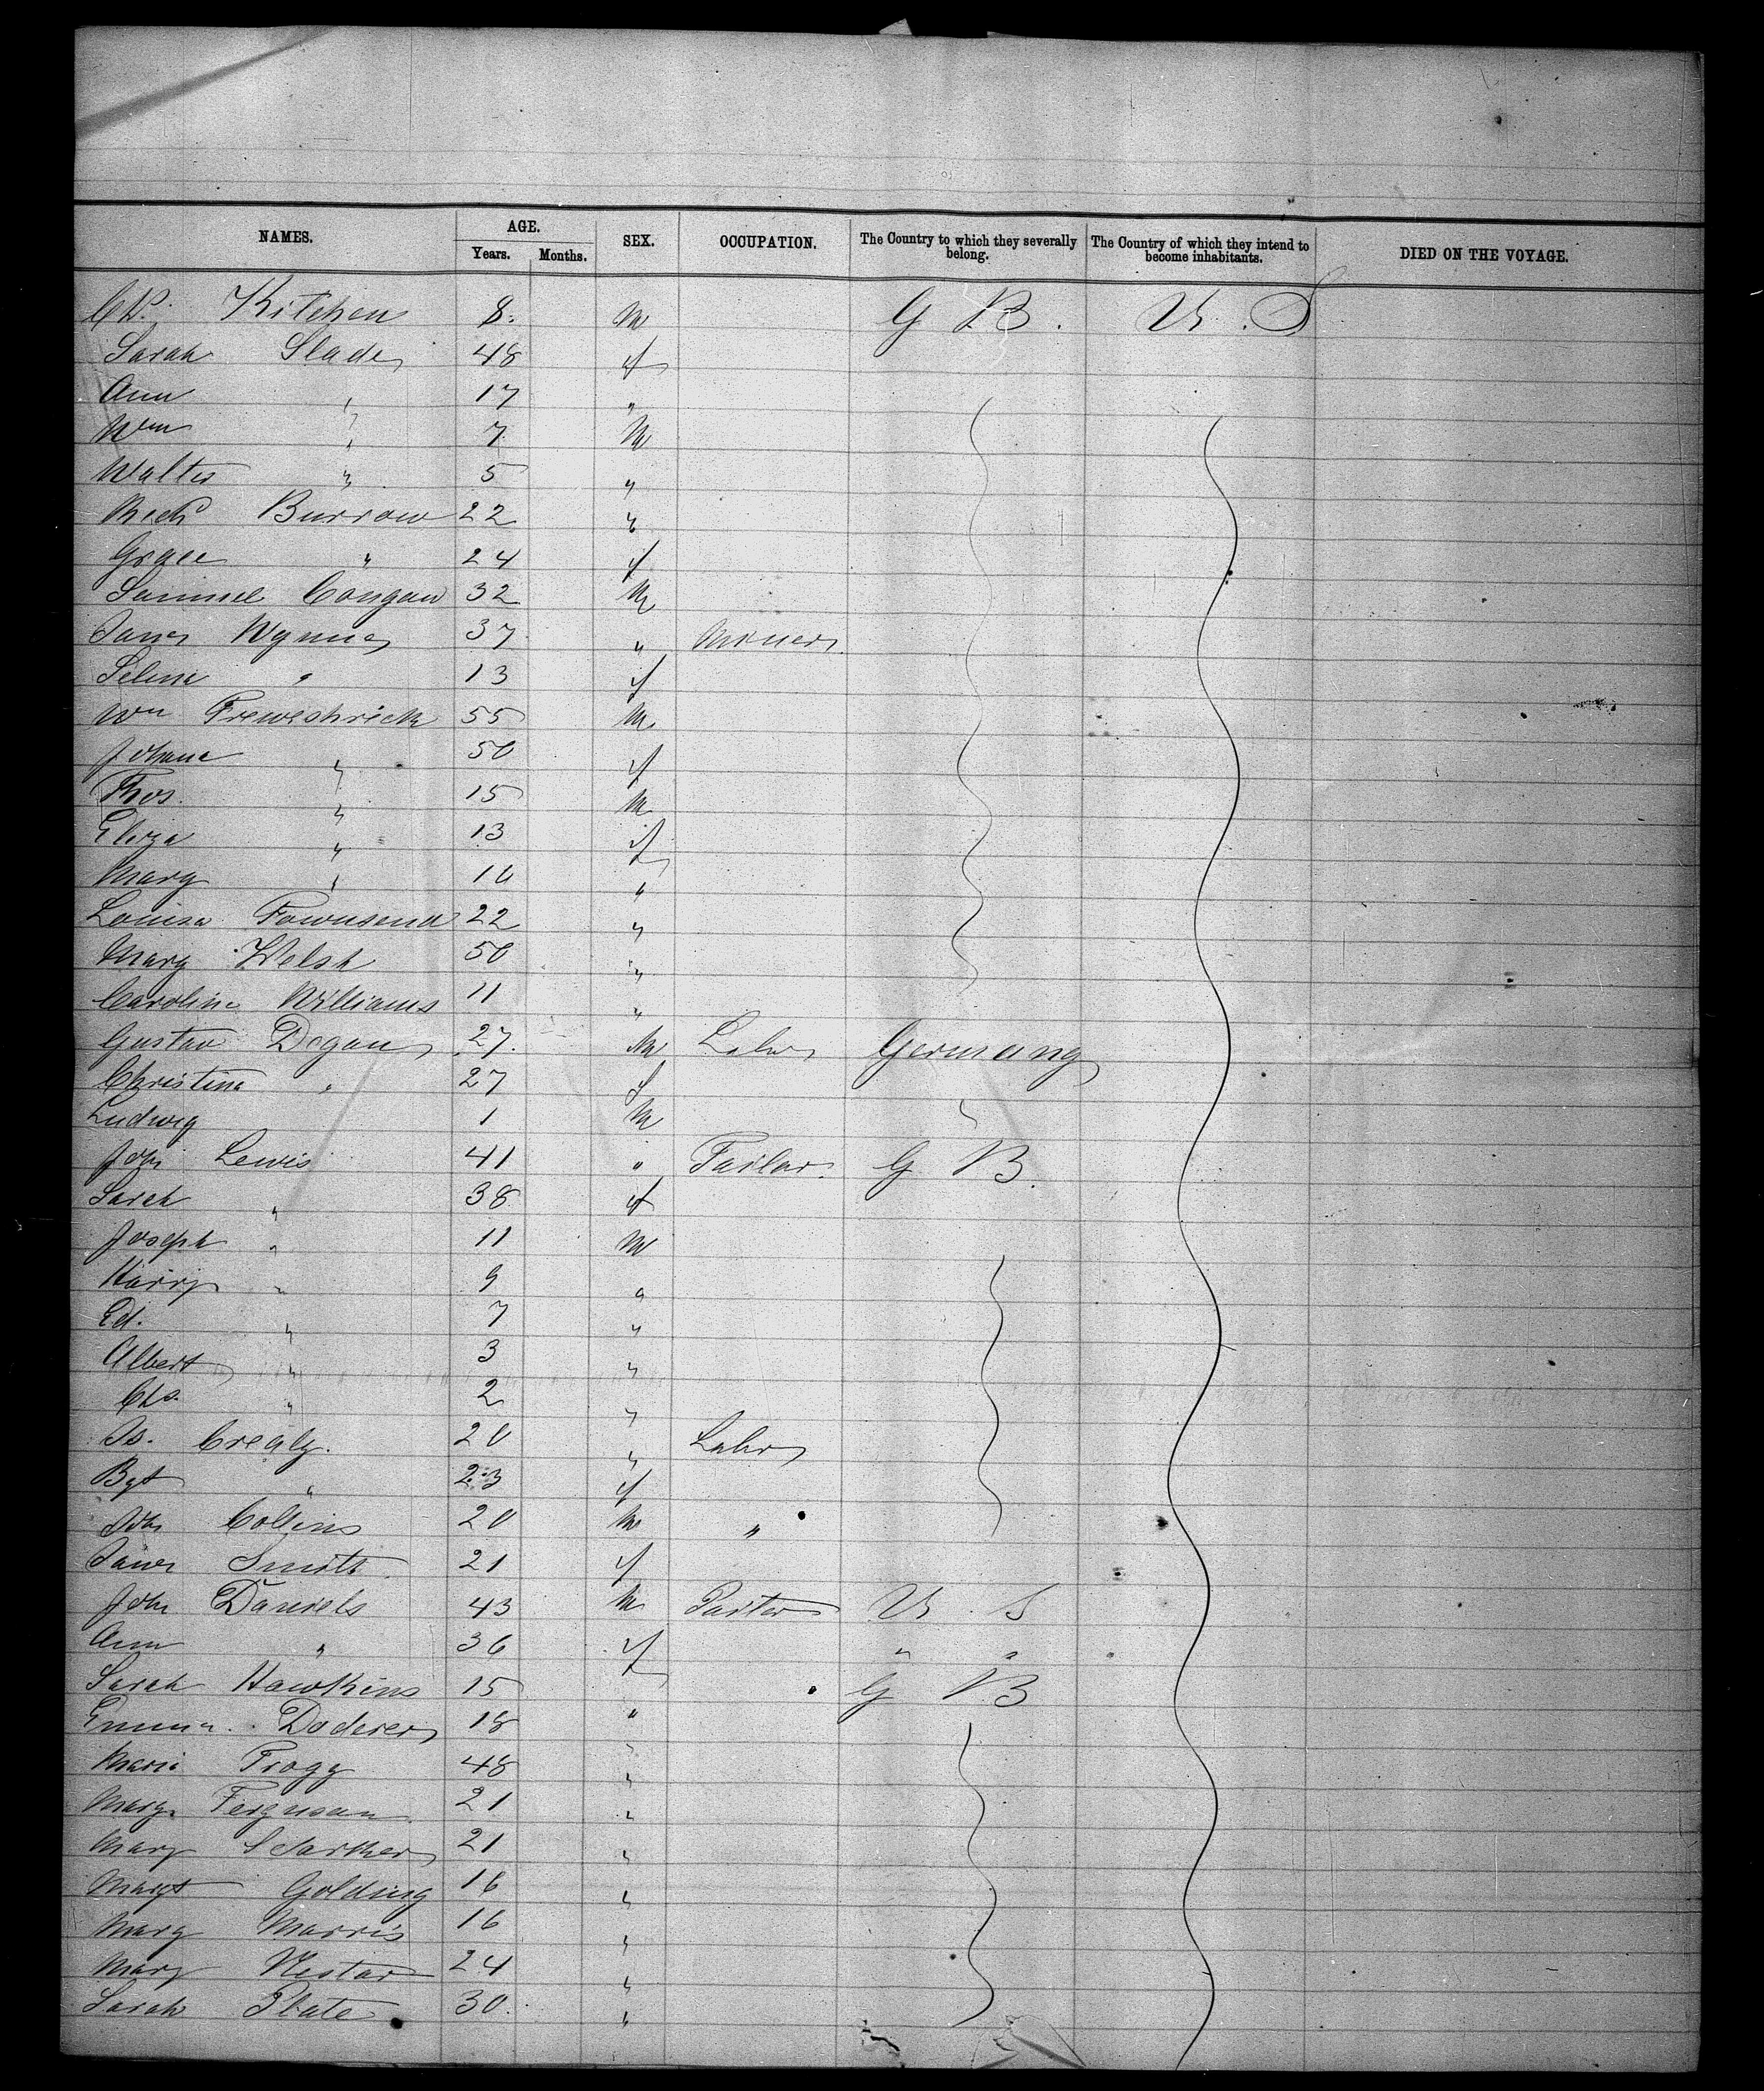 NAMES. AGE. SEX. OCCUPATION. The Country to which they severally belong. The Country of which they intend to become inhabitants. DIED ON THE VOYAGE.
Years. Months.
Kitchen 8. M G B. U. S
Sarah Slade 48 f
Ann " 17 "
Wm " 7 M
Walter " 5 "
Richd Burrow 22 "
Grace " 24 f
Samuel Congan 32 M
James Wynne 37 " Miner
Selina " 13 f
Wm Treweshrick 55 M
Johana " 50 f
Thos. " 15 M
Eliza " 13 f
Mary " 10 "
Louisa Townsend 22 "
Mary Welsh 50 "
Caroline Williams 11 "
Gustav Degan 27. M Labr Germany
Christina " 27 f
Ludwig 1 M
John Lewis 41 " Tailor G B.
Sarah " 38 f
Joseph " 11 M
Harry " 9 "
Ed. " 7 "
Albert " 3 "
Chs. " 2 "
Js. Crealy. 20 " Labr
Bgt " 23 f
John Collins 20 M "
Jane Smith 21 f
John Daniels 43 M U. S
Ann " 36 f " "
Sarah Hawkins 15 " G B
Emma Doderer 18 "
Maria Frogg 48 "
Mary Ferguson 21 "
Mary 21 "
Margt Golding 16 "
Mary Morris 16 "
Mary Nestor 24 "
Sarah Plate 30. "